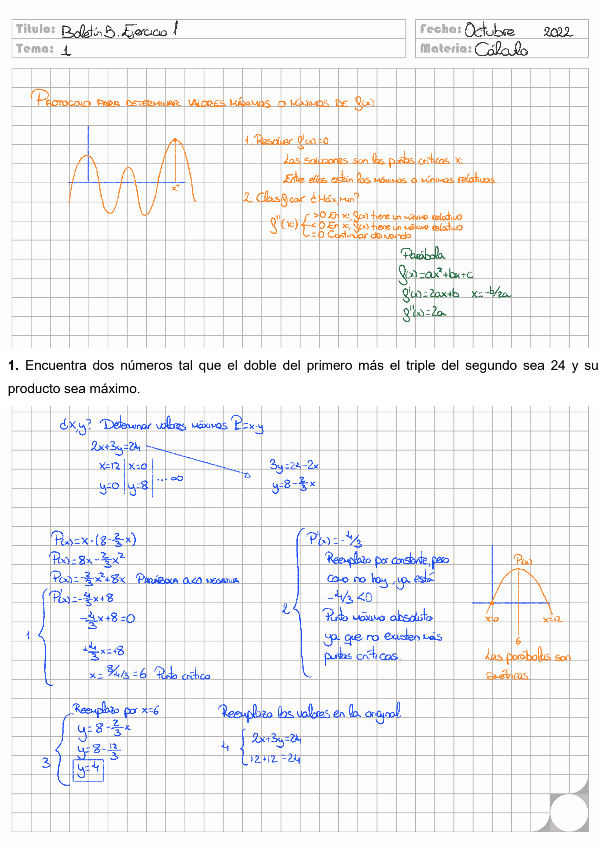 Título: Boletín B. Ejercicio 1
Fecha: Octubre 2022
Tema: 1
Materia: Cálculo
PROTOCOLO PARA DETERMINAR VALORES MÁXIMOS O MÍNIMOS DE f(x)
1. Resolver f'(x)=0
Las soluciones son los puntos críticos xi
Entre ellos están los máximos o mínimos relativos
2. Clasificar ¿Máx, min?
f''(xi)
>0 En xi f(x) tiene un mínimo relativo
<0 En xi f(x) tiene un máximo relativo
=0 Continuar derivando
x*
Parábola
f(x)=ax²+bx+c
f'(x)=2ax+b x=-b/2a
f''(x)=2a
1. Encuentra dos números tal que el doble del primero más el triple del segundo sea 24 y su
producto sea máximo.
¿x,y? Determinar valores máximos P=x·y
2x+3y=24
x=12 x=0
y=0 y=8 ... ∞
3y=24-2x
y=8-2/3x
P(x)=x·(8-2/3x)
P(x)=8x-2/3x²
P(x)=-2/3x²+8x PARÁBOLA a<0 NEGATIVA
1
P'(x)=-4/3x+8
-4/3x+8=0
+4/3x=+8
x=8/4/3=6 Punto crítico
2
P''(x)=-4/3
Reemplazo por constante, pero
como no hay, ya está
-4/3<0
Punto máximo absoluto
ya que no existen más
puntos críticos.
P(x)
x=0 x=12
6
Las parábolas son
simétricas
3
Reemplazo por x=6
y=8-2/3x
y=8-12/3
y=4
Reemplazo los valores en la original
4
2x+3y=24
12+12=24